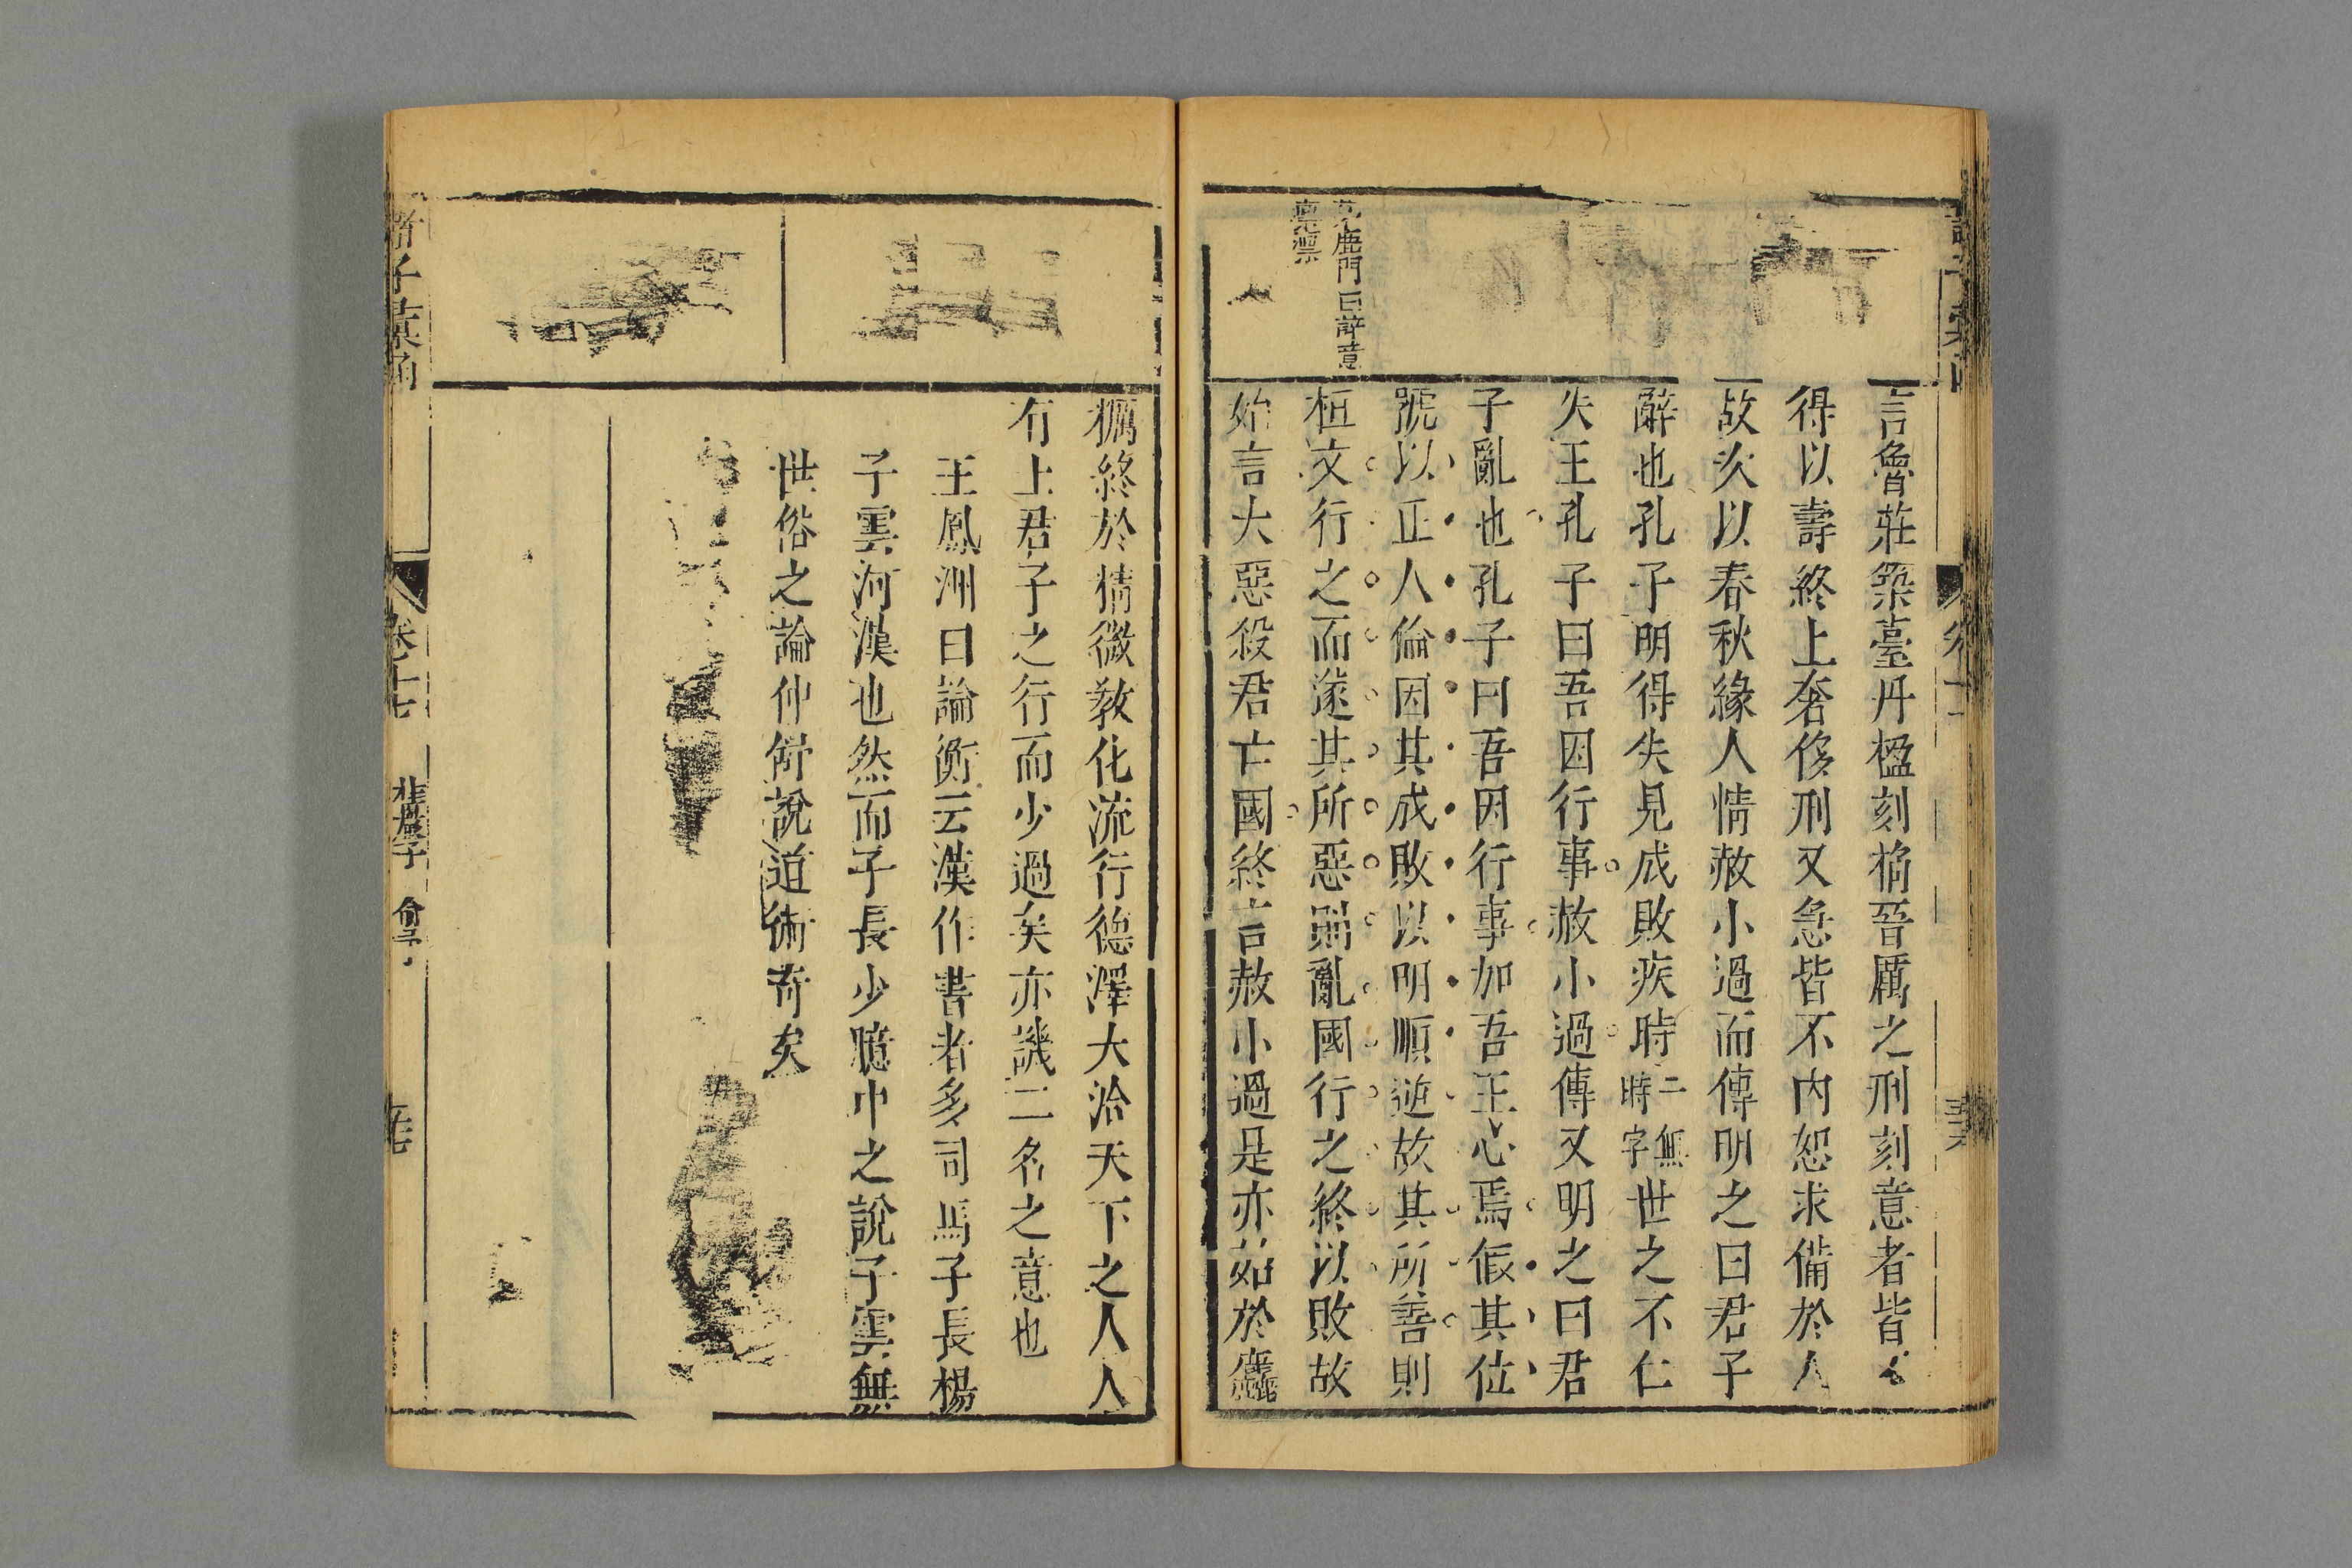 言魯莊築臺丹楹刻桷晉厲之刑刻意者皆不
得以壽終上奢侈刑又急皆不內恕求備於人
故次以春秋緣人情赦小過而傳明之曰君子
辭也孔子明得失見成敗疾時二無時字世之不仁
失王孔子曰吾因行事赦小過傳又明之曰君
子亂也孔子曰吾因行事加吾王心焉假其位
號以正人倫因其成敗以明順逆故其所善則
桓文行之而遂其所惡則亂國行之終以敗故
始言大惡殺君亡國終言赦小過是亦始於麤
茅鹿門曰辭意
凛凛
糲終於精微教化流行德澤大洽天下之人人
有士君子之行而少過矣亦譏二名之意也
王鳳洲曰論衡云漢作書者多司馬子長楊
子雲河漢也然而子長少臆中之說子雲無
世俗之論仲舒說道術奇矣
諸子彙函
卷十七